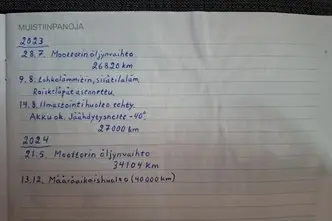 MUISTIINPANOJA
2023
28.7. Moottorin öljynvaihto
26820 km
9.8. Lohkolämmitin, sisätilaläm.
Roiskeläpät asennettu.
14.8. Ilmastointihuolto tehty.
Akku ok. Jäähdytysneste -40°.
27000 km
2024
21.5. Moottorin öljynvaihto
34104 km
13.12. Määräaikaishuolto (40000 km)